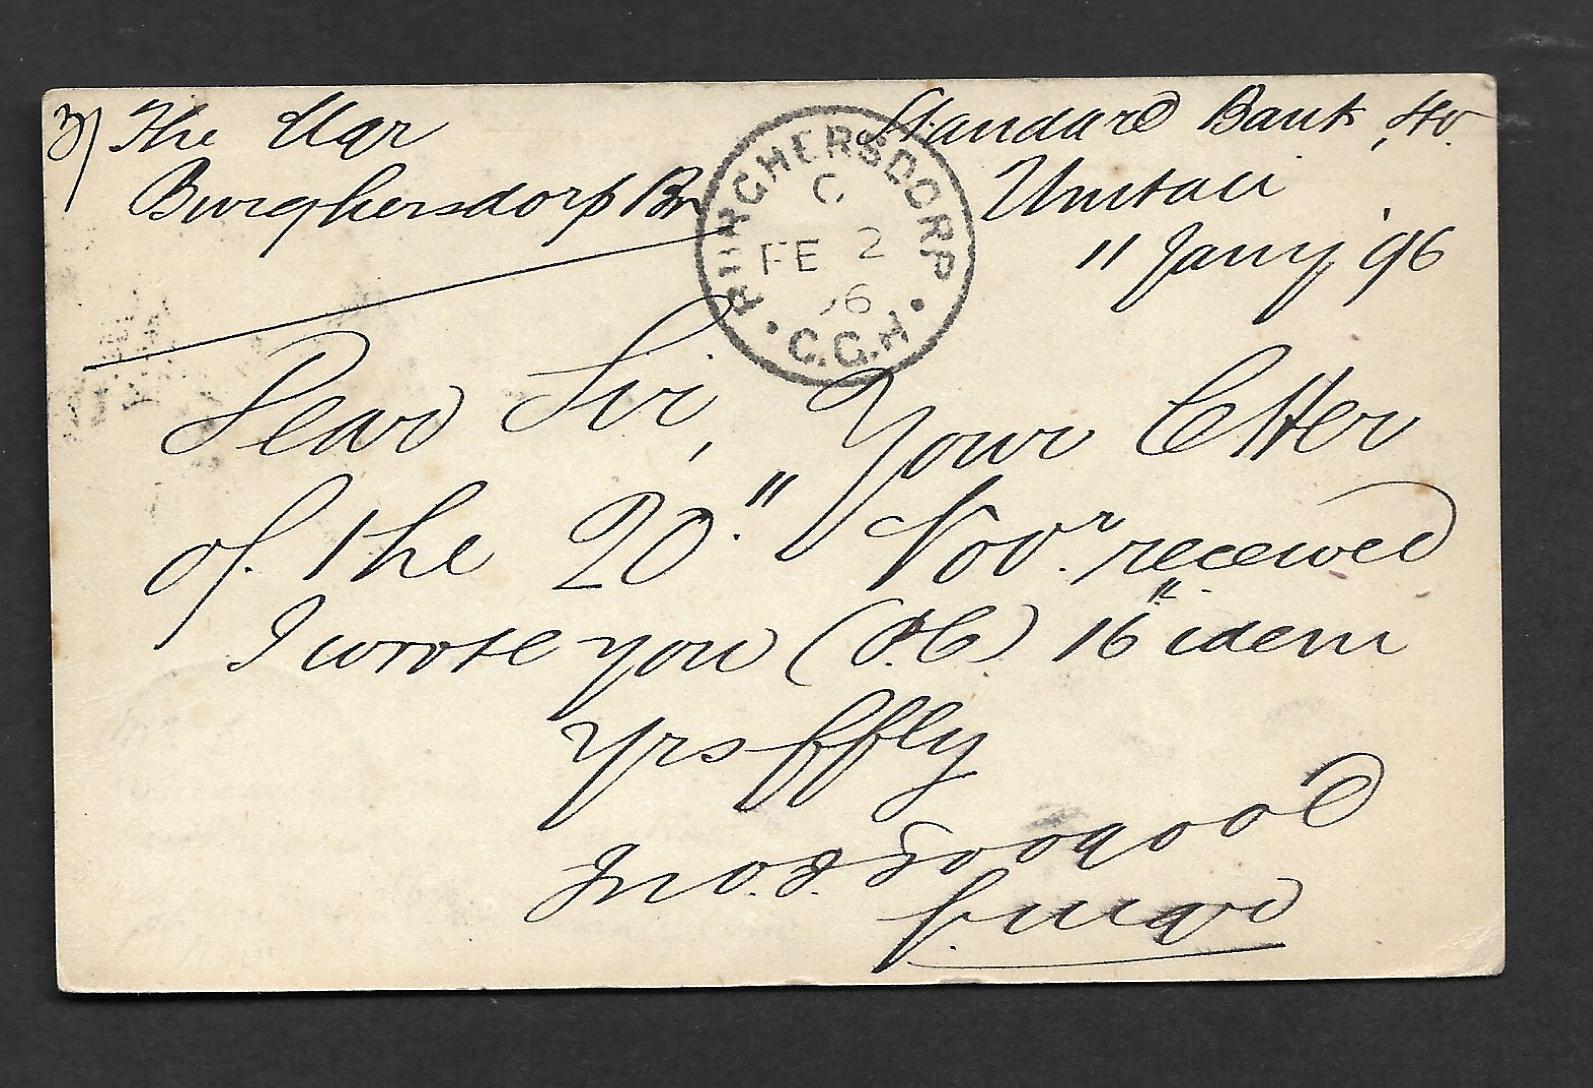 3/ The Mgr
Burghersdorp Br
Standard Bank
Umtali
11 Jany '96
BURGHERSDORP
C
FE 2
96
C.G.H
Dear Sir, Your letter
of the 20" Novr received
I wrote you (P.C) 16" idem
Yrs ffly
Jno.
p. Mgr